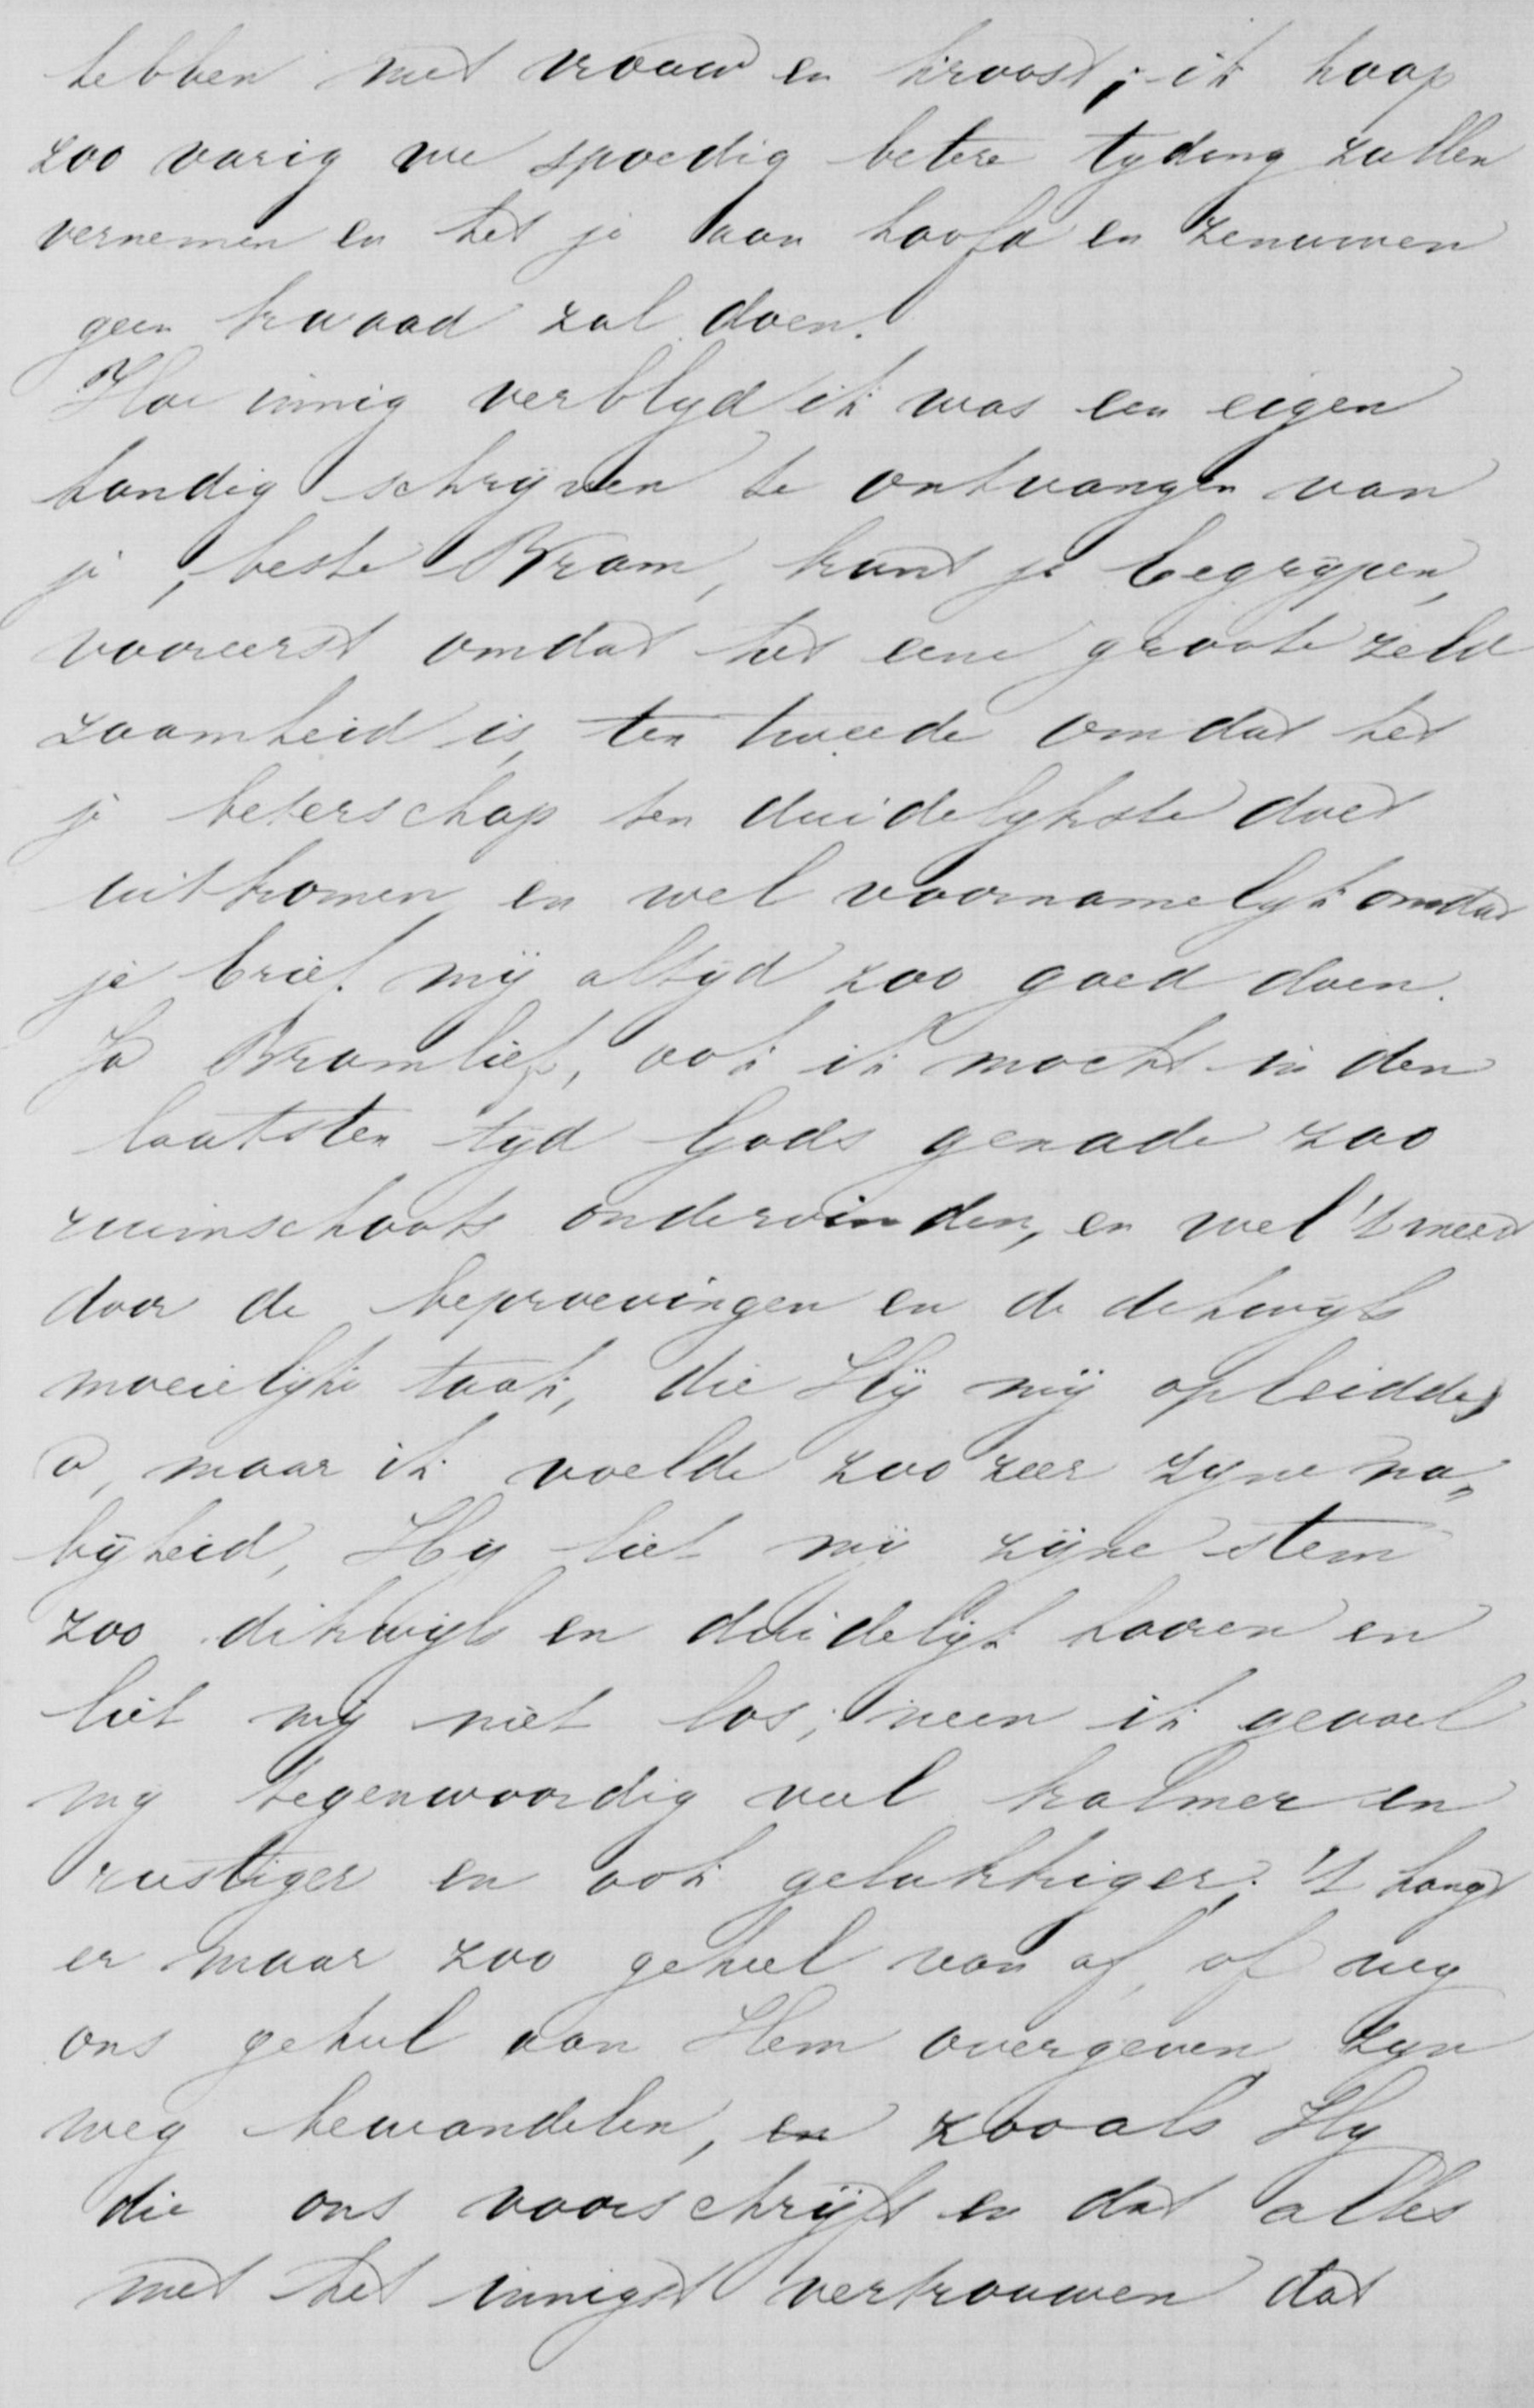 hebben met vrouw en kroost; ik hoop
zoo vurig we spoedig betere tyding zullen
vernemen en het je aan hoofd en zenuwen
geen kwaad zal doen.
Hoe innig verblyd ik was een eigen
handig schrijven te ontvangen van
je, beste Bram, kunt je begrypen,
vooreerst omdat het eene groote zeld
zaamheid is, ten tweede omdat het
je beterschap ten duidelykste doet
uitkomen en wel voornamelyk omdat
je brief mij altyd zoo goed doen.
Ja Bramlief, ook ik mocht in den
laatsten tyd Gods genade zoo
ruimschoots ondervinden, en wel 't meest
door de beproevingen en de dikwyls
moeielijke taak, die Hij mij opleidde,
o, maar ik voelde zoo zeer zyne na„
bijheid, Hij liet mij zijne stem
zoo dikwijls en duidelijk hooren en
liet mij niet los; neen ik gevoel
my tegenwoordig veel kalmer en
rustiger en ook gelukkiger; 't hangt
er maar zoo geheel van af, of wy
ons geheel aan Hem overgeven zyn
weg bewandelen, en zooals Hy
die ons voorschrijft en dat alles
met het innigst vertrouwen dat